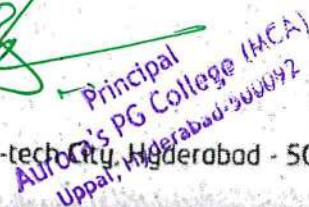 Principal
Aurora's PG College (MCA)
Uppal, Hyderabad-500092
-tech City, Hyderabad - 50